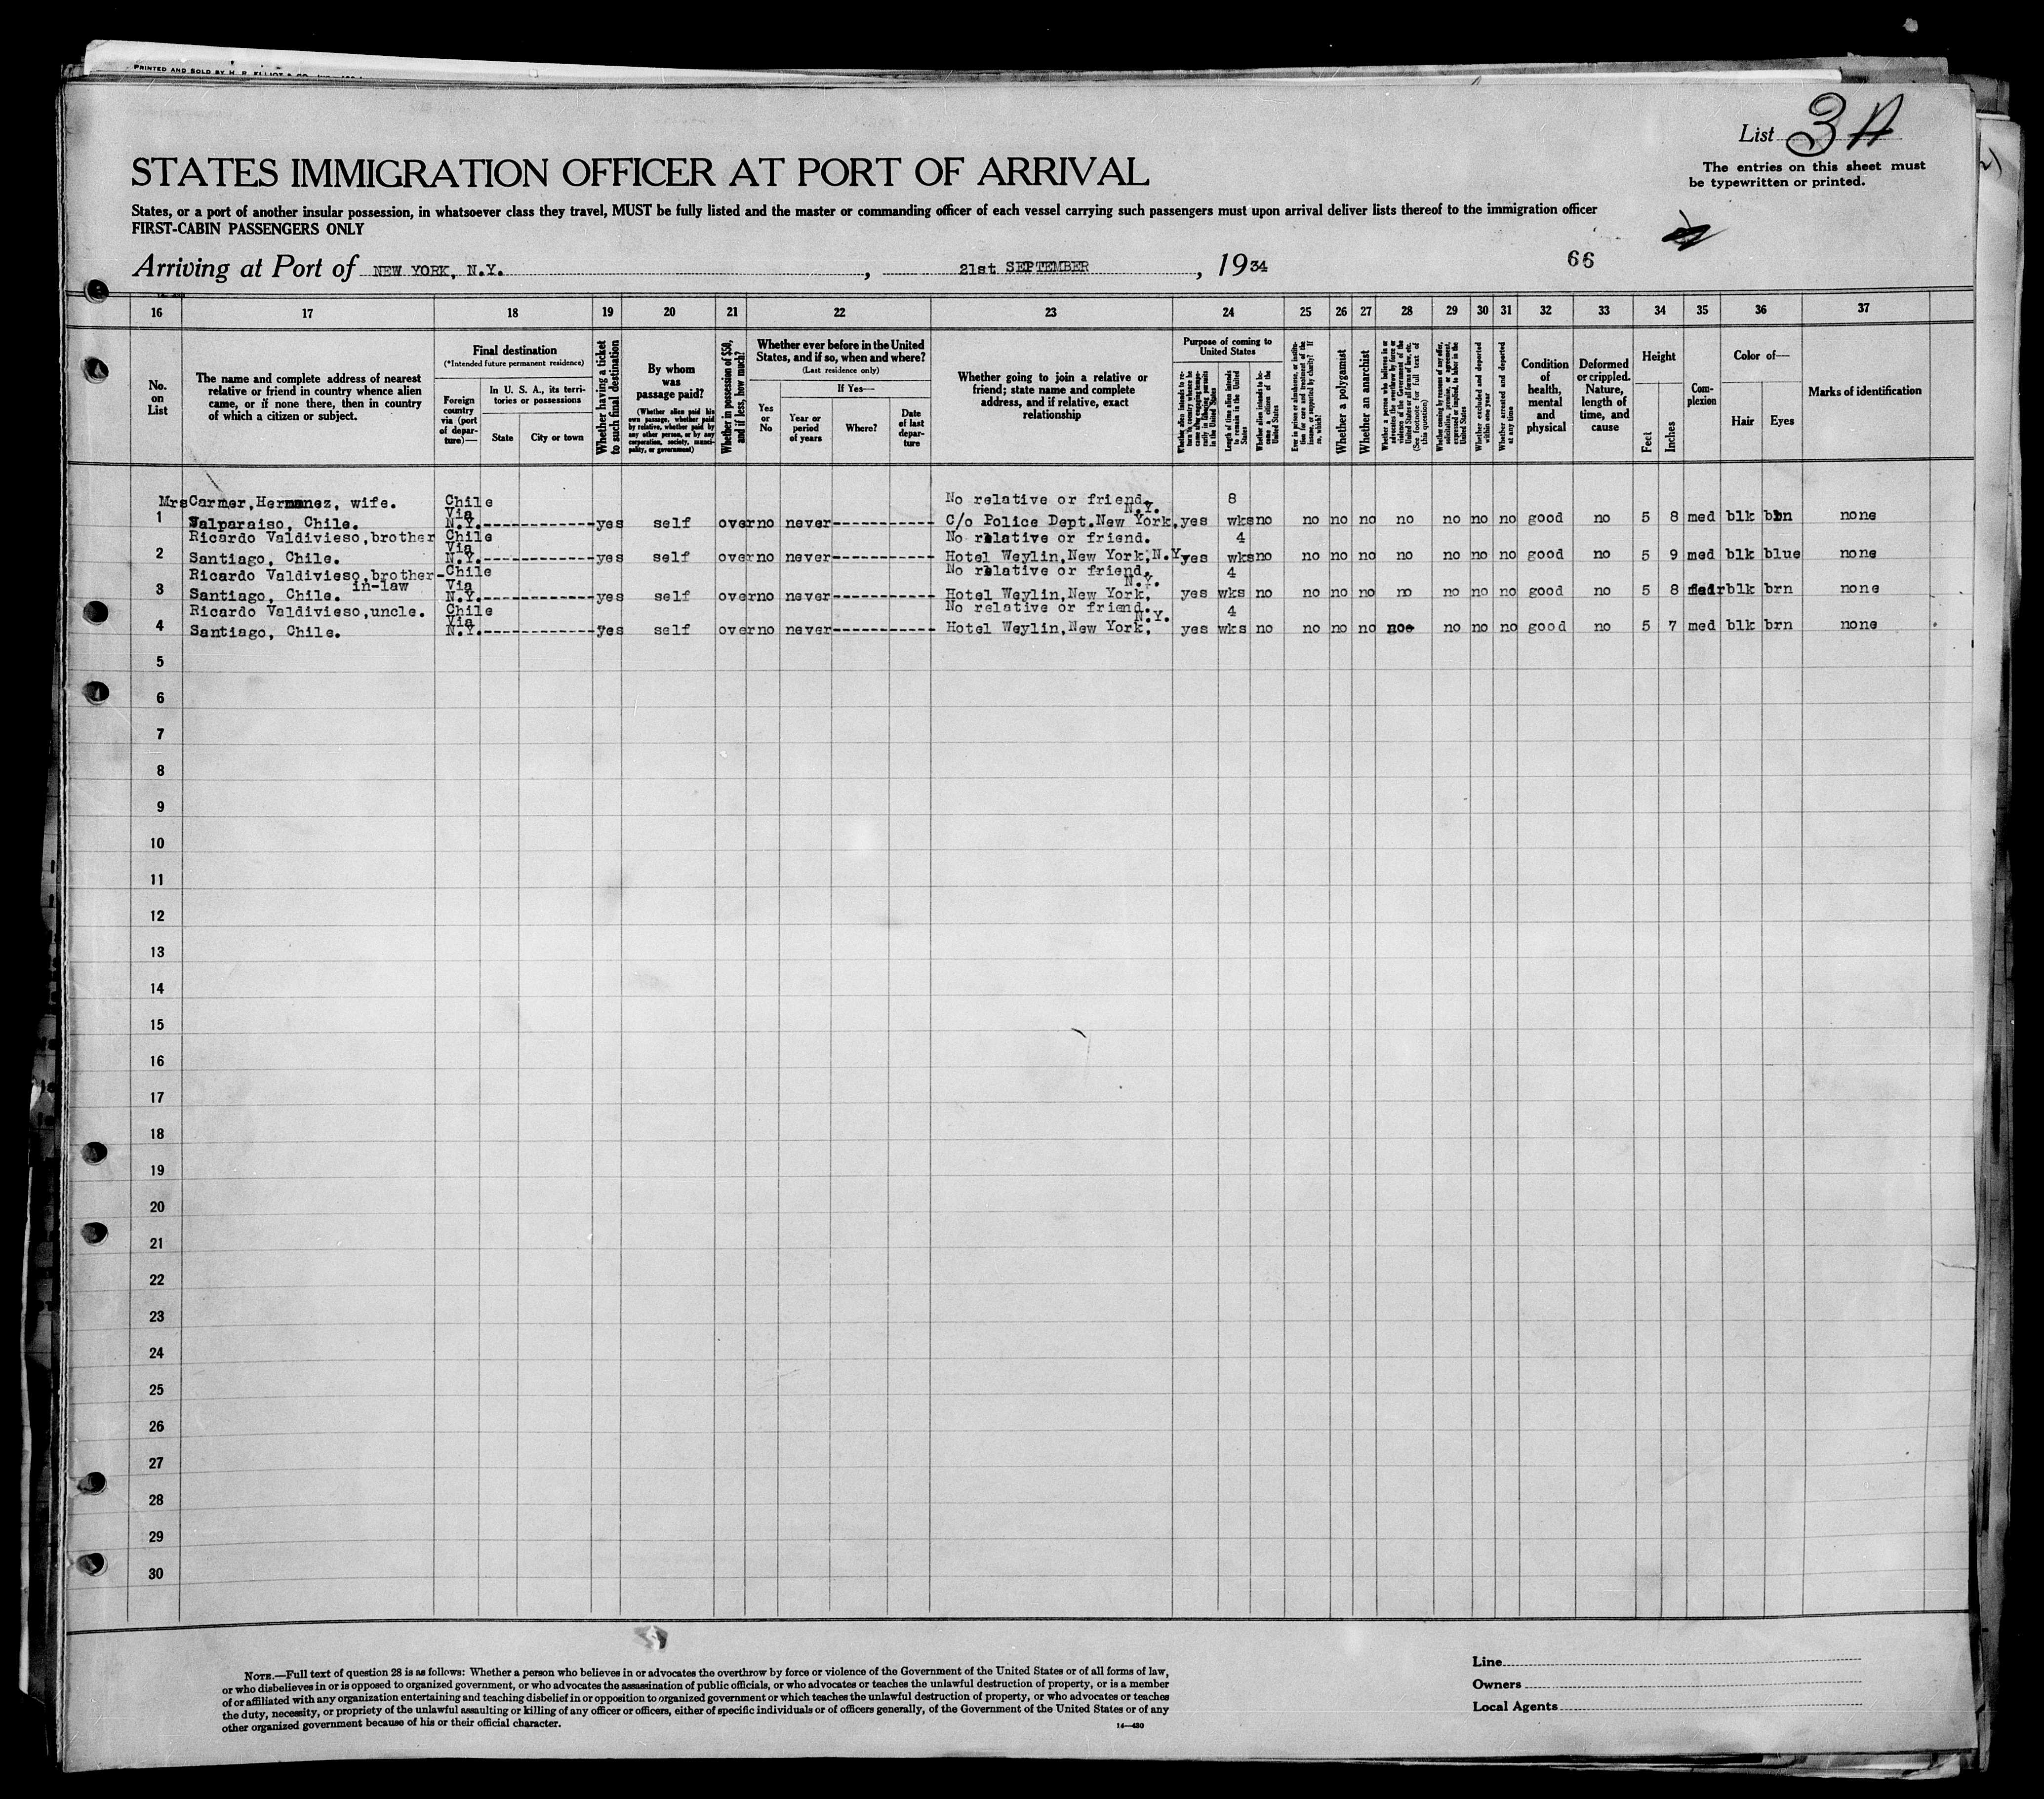 PRINTED AND SOLD BY H. R. ELLIOT & CO.
List 3 A
STATES IMMIGRATION OFFICER AT PORT OF ARRIVAL
The entries on this sheet must
be typewritten or printed.
States, or a port of another insular possession, in whatsoever class they travel, MUST be fully listed and the master or commanding officer of each vessel carrying such passengers must upon arrival deliver lists thereof to the immigration officer
FIRST-CABIN PASSENGERS ONLY
Arriving at Port of NEW YORK, N.Y., 21st SEPTEMBER, 1934 66
16 17 18 19 20 21 22 23 24 25 26 27 28 29 30 31 32 33 34 35 36 37
No. on List
The name and complete address of nearest relative or friend in country whence alien came, or if none there, then in country of which a citizen or subject.
Final destination
(*Intended future permanent residence)
Foreign country via (port of departure)—
In U. S. A., its territories or possessions
State City or town
Whether having a ticket to such final destination
By whom was passage paid?
(Whether alien paid his own passage, whether paid by relative, whether paid by any other person, or by any corporation, society, municipality, or government)
Whether in possession of $50, and if less, how much?
Whether ever before in the United States, and if so, when and where?
(Last residence only)
Yes or No
If Yes—
Year or period of years
Where?
Date of last departure
Whether going to join a relative or friend; state name and complete address, and if relative, exact relationship
Purpose of coming to United States
Length of time alien intends to remain in the United States
Whether alien intends to become a citizen of the United States
Whether a polygamist
Whether an anarchist
(See footnote for full text of this question)
Whether excluded and deported within one year
Whether arrested and deported at any time
Condition of health, mental and physical
Deformed or crippled. Nature, length of time, and cause
Height
Feet Inches
Complexion
Color of—
Hair Eyes
Marks of identification
Mrs Carmer, Hermnez, wife. Chile No relative or friend. 8
1 Valparaiso, Chile. Via N.Y.------------yes self over no never----------- C/o Police Dept. New York, N.Y. yes wks no no no no no no no no good no 5 8 med blk brn none
Ricardo Valdivieso, brother Chile No relative or friend. 4
2 Santiago, Chile. Via N.Y.------------yes self over no never----------- Hotel Weylin, New York, N.Y. yes wks no no no no no no no no good no 5 9 med blk blue none
Ricardo Valdivieso, brother-in-law Chile No relative or friend. 4
3 Santiago, Chile. Via N.Y.------------yes self over no never----------- Hotel Weylin, New York, N.Y. yes wks no no no no no no no no good no 5 8 fair blk brn none
Ricardo Valdivieso, uncle. Chile No relative or friend. 4
4 Santiago, Chile. Via N.Y.------------yes self over no never----------- Hotel Weylin, New York, N.Y. yes wks no no no no no no no no good no 5 7 med blk brn none
5
6
7
8
9
10
11
12
13
14
15
16
17
18
19
20
21
22
23
24
25
26
27
28
29
30
NOTE.—Full text of question 28 is as follows: Whether a person who believes in or advocates the overthrow by force or violence of the Government of the United States or of all forms of law,
or who disbelieves in or is opposed to organized government, or who advocates the assassination of public officials, or who advocates or teaches the unlawful destruction of property, or is a member
of or affiliated with any organization entertaining and teaching disbelief in or opposition to organized government or which teaches the unlawful destruction of property, or who advocates or teaches
the duty, necessity, or propriety of the unlawful assaulting or killing of any officer or officers, either of specific individuals or of officers generally, of the Government of the United States or of any
other organized government because of his or their official character.
14—430
Line
Owners
Local Agents